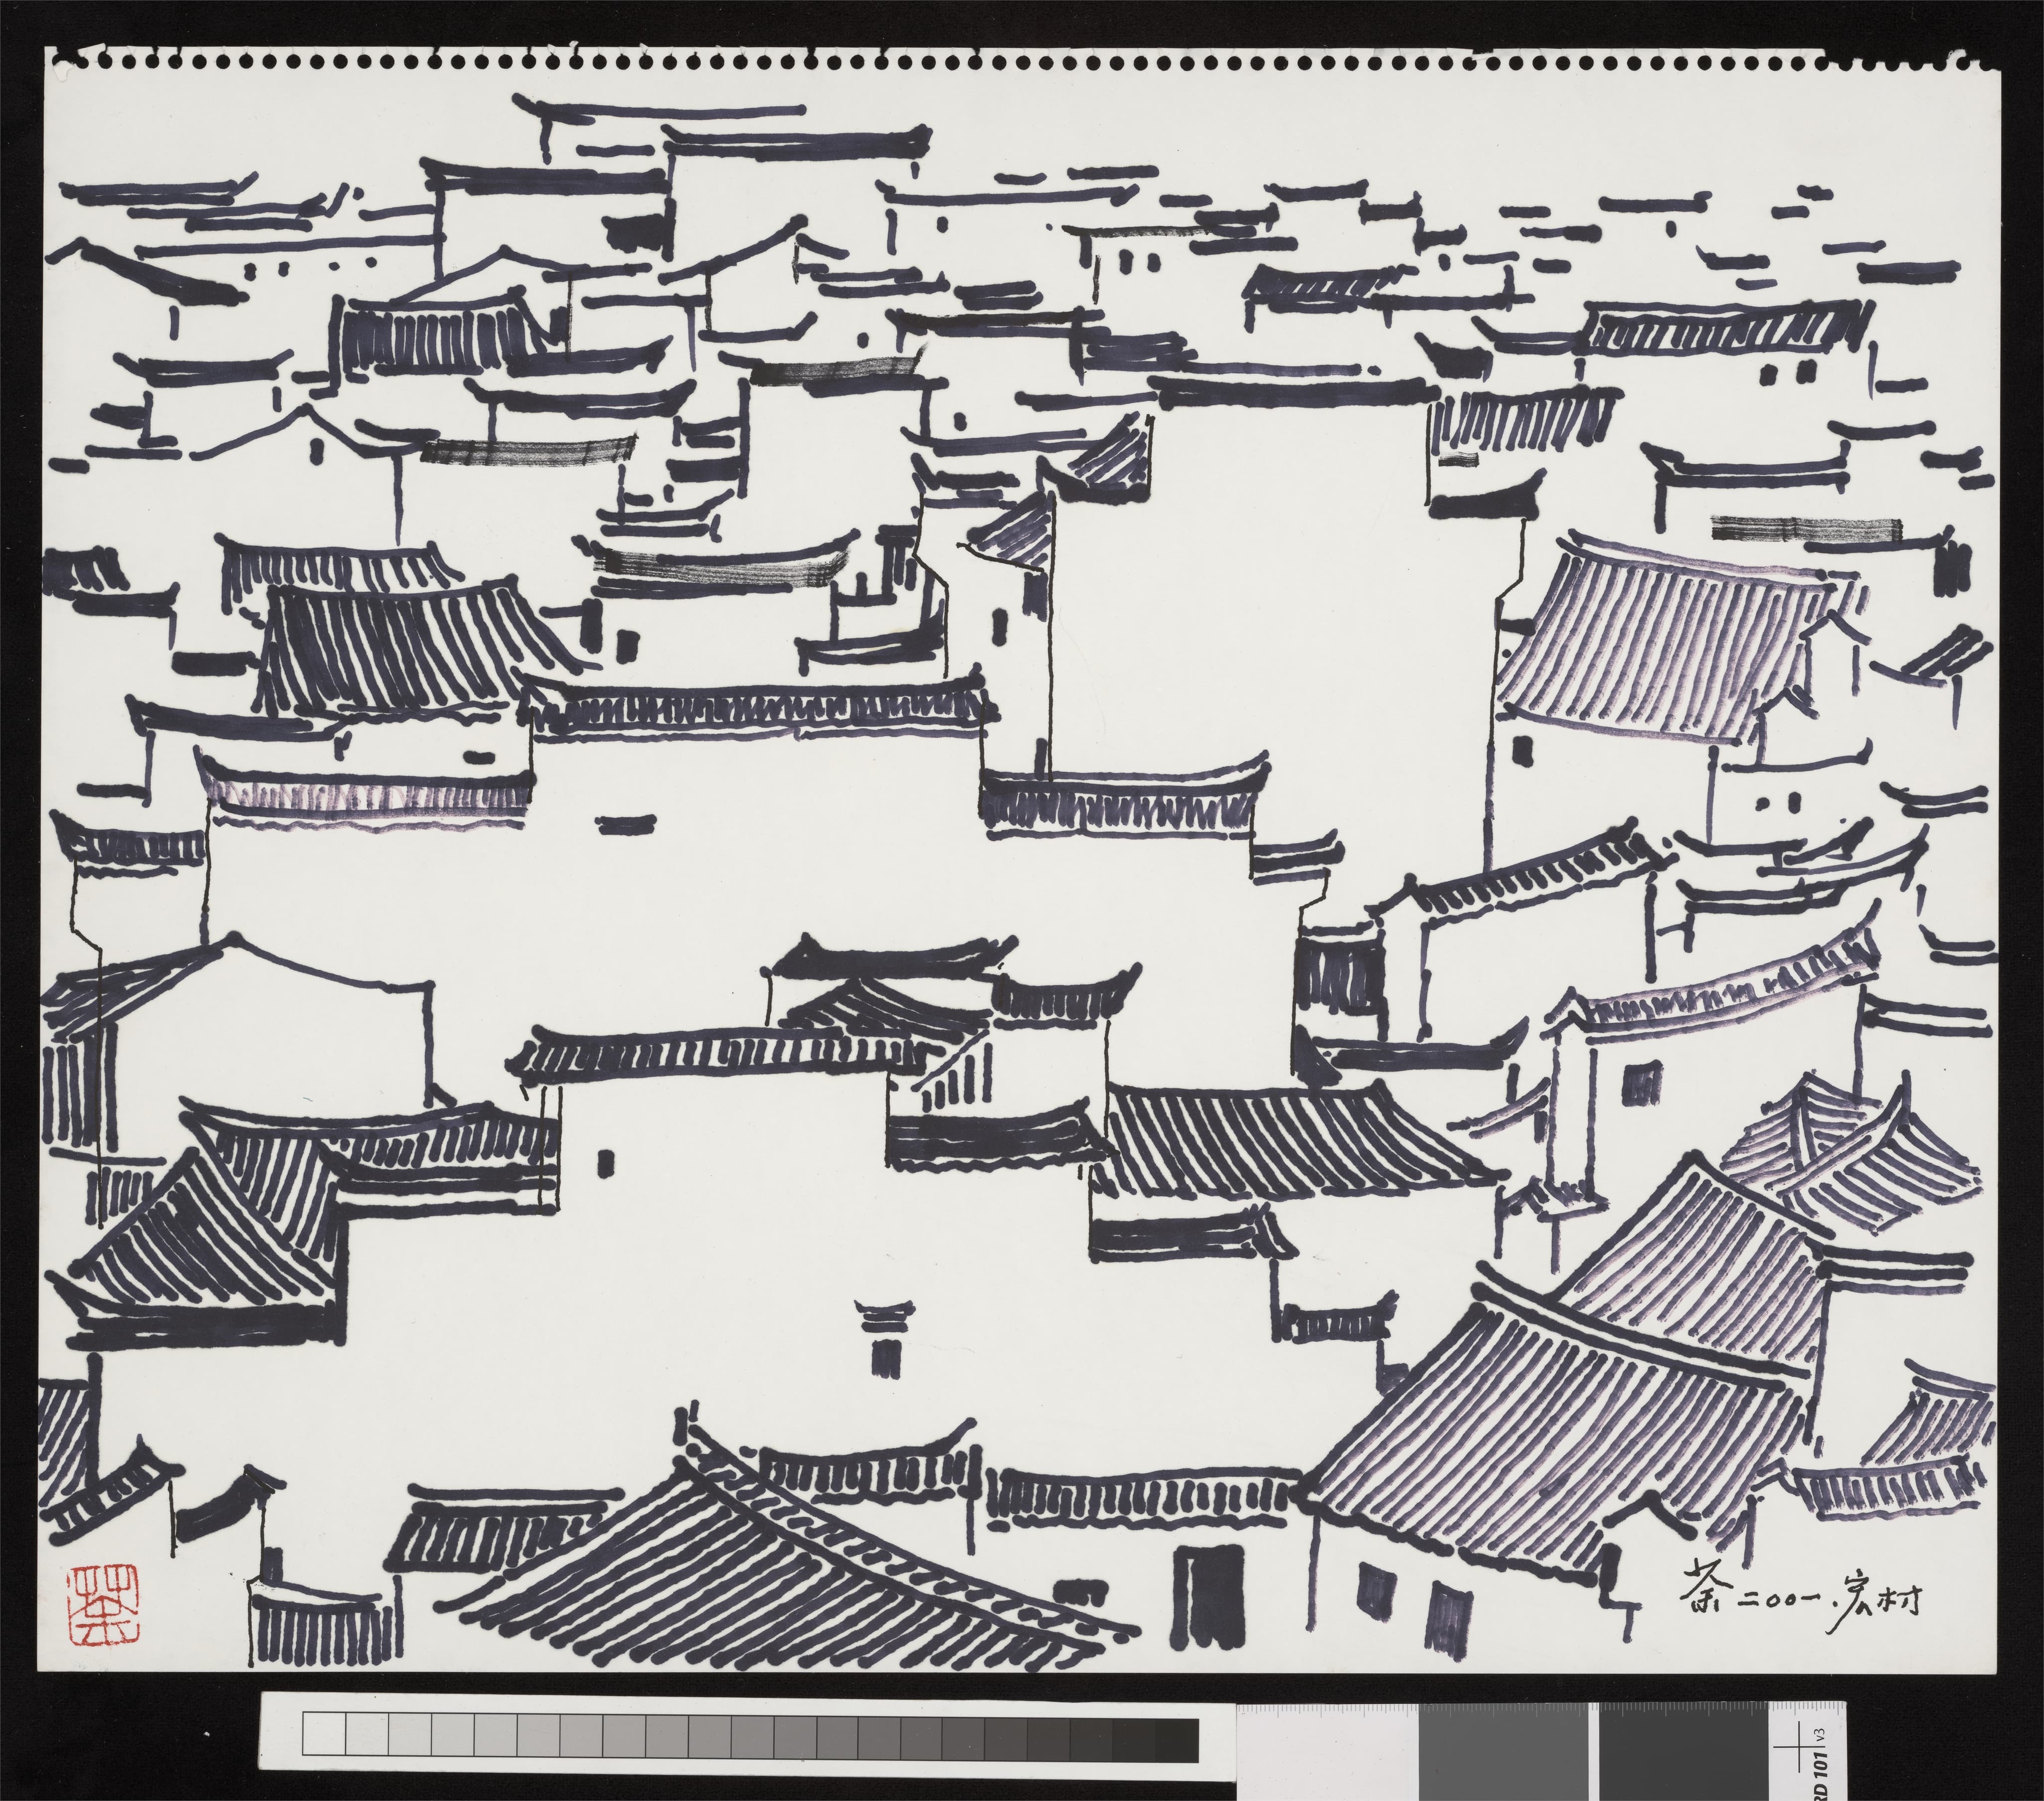 荼二〇〇一.宏村
荼
RD 101 v3